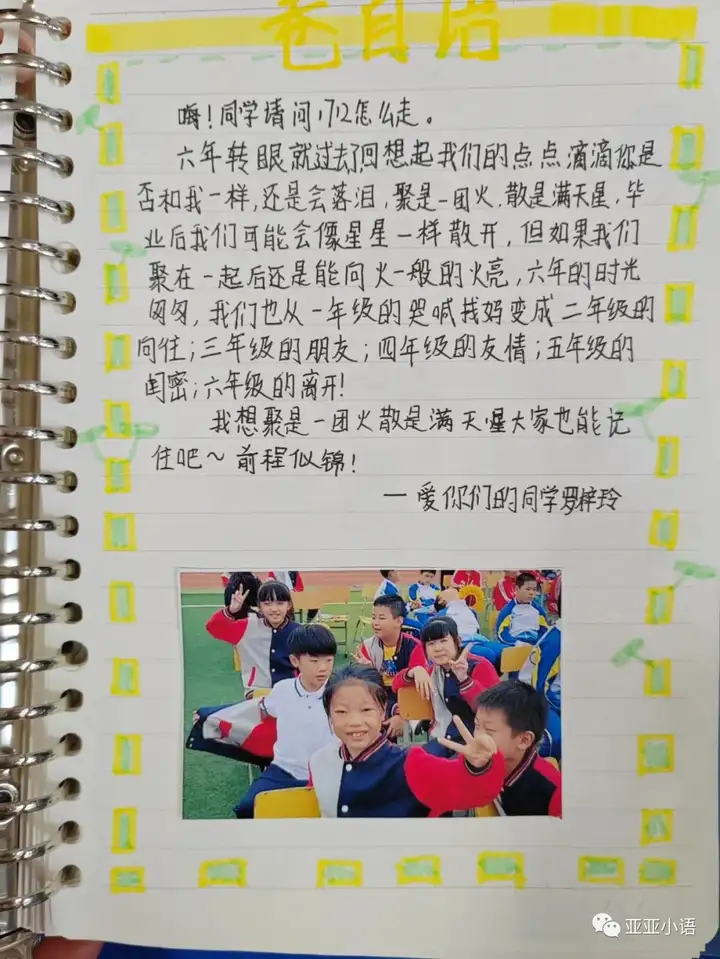 嗨！同学请问1712怎么走。
六年转眼就过去了回想起我们的点点滴滴你是
否和我一样，还是会落泪，聚是一团火，散是满天星，毕
业后我们可能会像星星一样散开，但如果我们
聚在一起后还是能向火一般的火亮，六年的时光
匆匆，我们也从一年级的哭喊找妈变成二年级的
向往；三年级的朋友；四年级的友情；五年级的
闺密；六年级的离开！
我想聚是一团火散是满天星大家也能记
住吧～前程似锦！
一爱你们的同学罗梓玲
亚亚小语